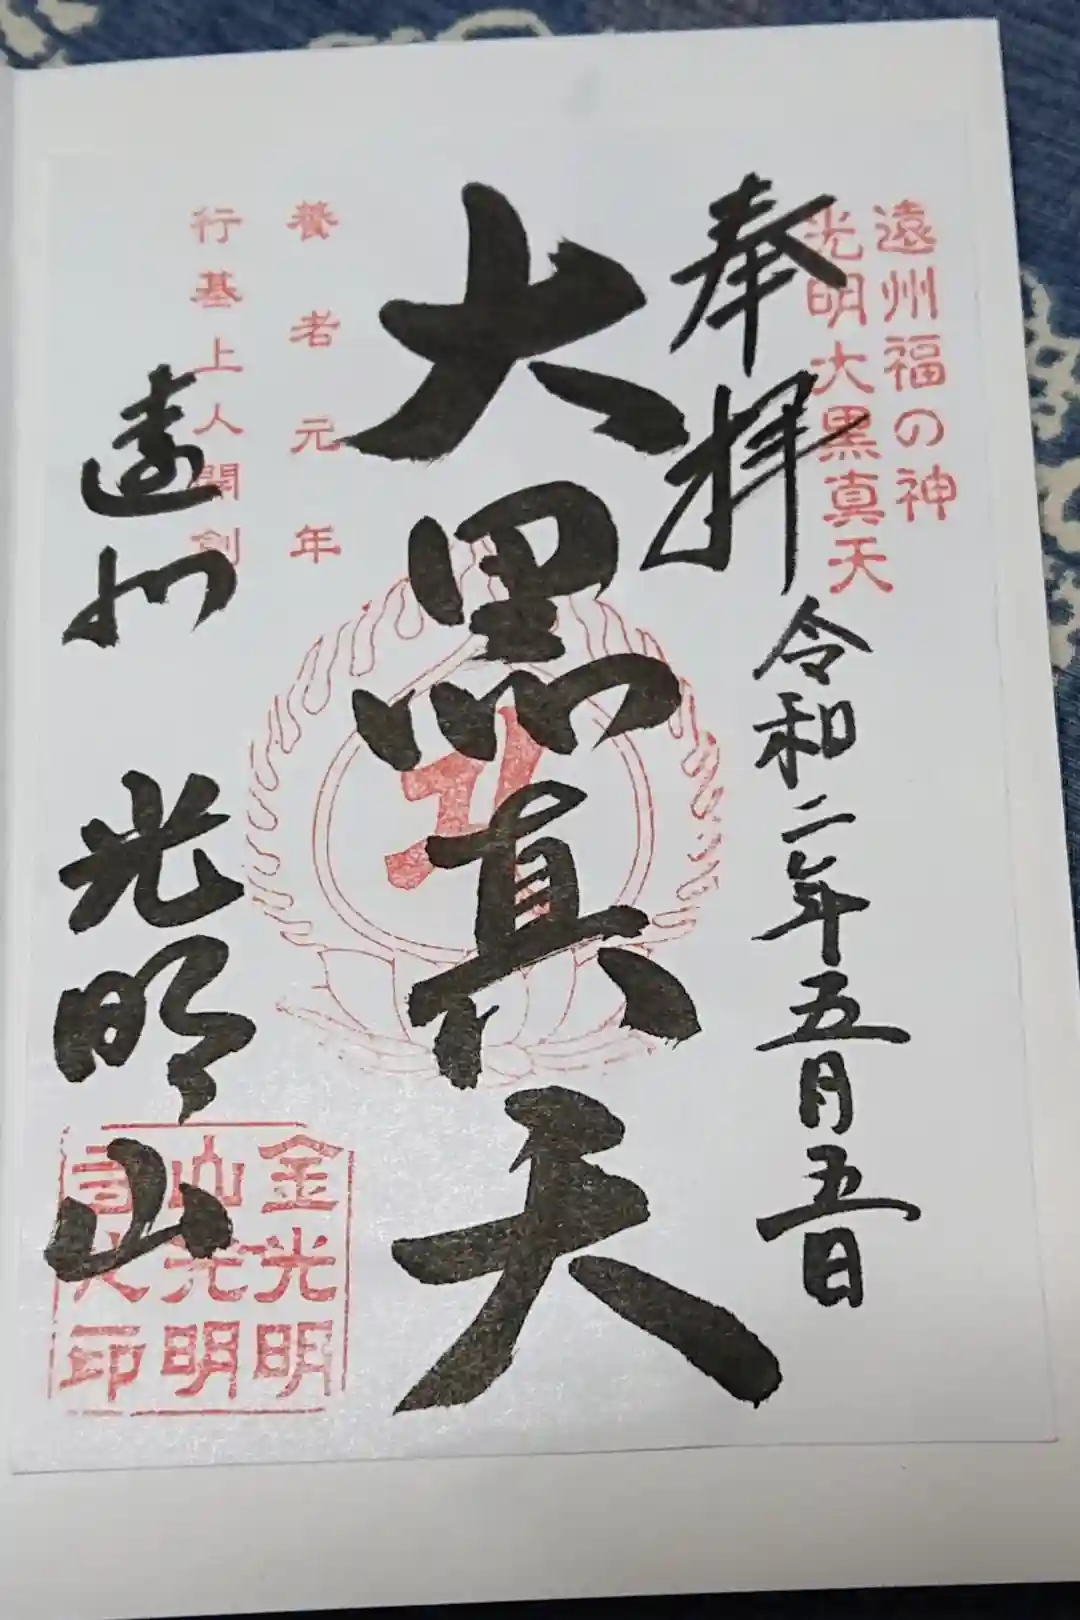 遠州福の神
光明大黒真天
奉拝
令和二年五月五日
大黒真天
養老元年
行基上人開創
遠州 光明山
金光明
山光明
寺之印